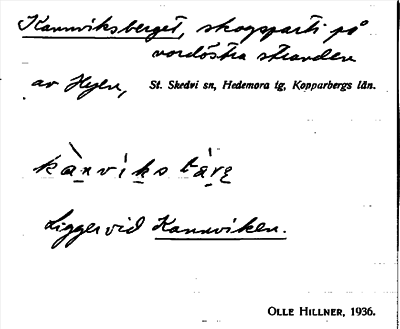 Kannviksberget, skogsparti på
nordöstra stranden
av Hyen, St. Skedvi sn, Hedemora tg, Kopparbergs län.
Ligger vid Kannviken.
OLLE HILLNER, 1936.